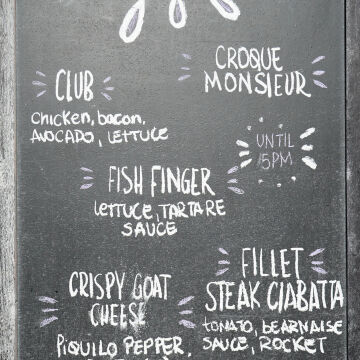 CLUB
Chicken, bacon,
AVOCADO, LETTUCE
CROQUE
MONSIEUR
UNTIL
5PM
FISH FINGER
LETTUCE, TARTARE
SAUCE
CRISPY GOAT
CHEESE
PiQUILO PEPPER,
FILLET
STEAK CIABATTA
TOMATO, BEARNAISE
SAUCE, ROCKET